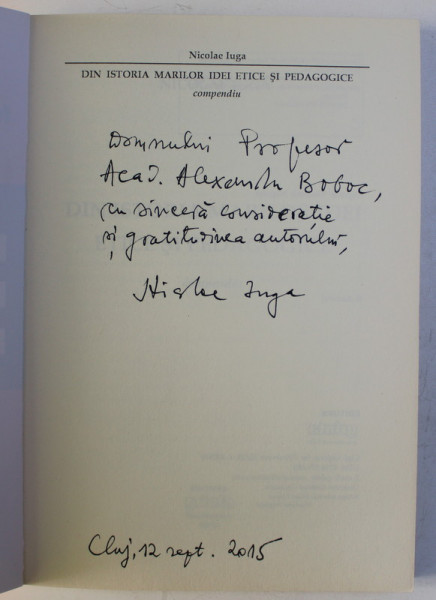 Nicolae Iuga
DIN ISTORIA MARILOR IDEI ETICE ȘI PEDAGOGICE
compendiu
Domnului Profesor
Acad. Alexandru Boboc,
cu sinceră considerație
și gratitudinea autorului,
Nicolae Iuga
Cluj, 12 sept. 2015